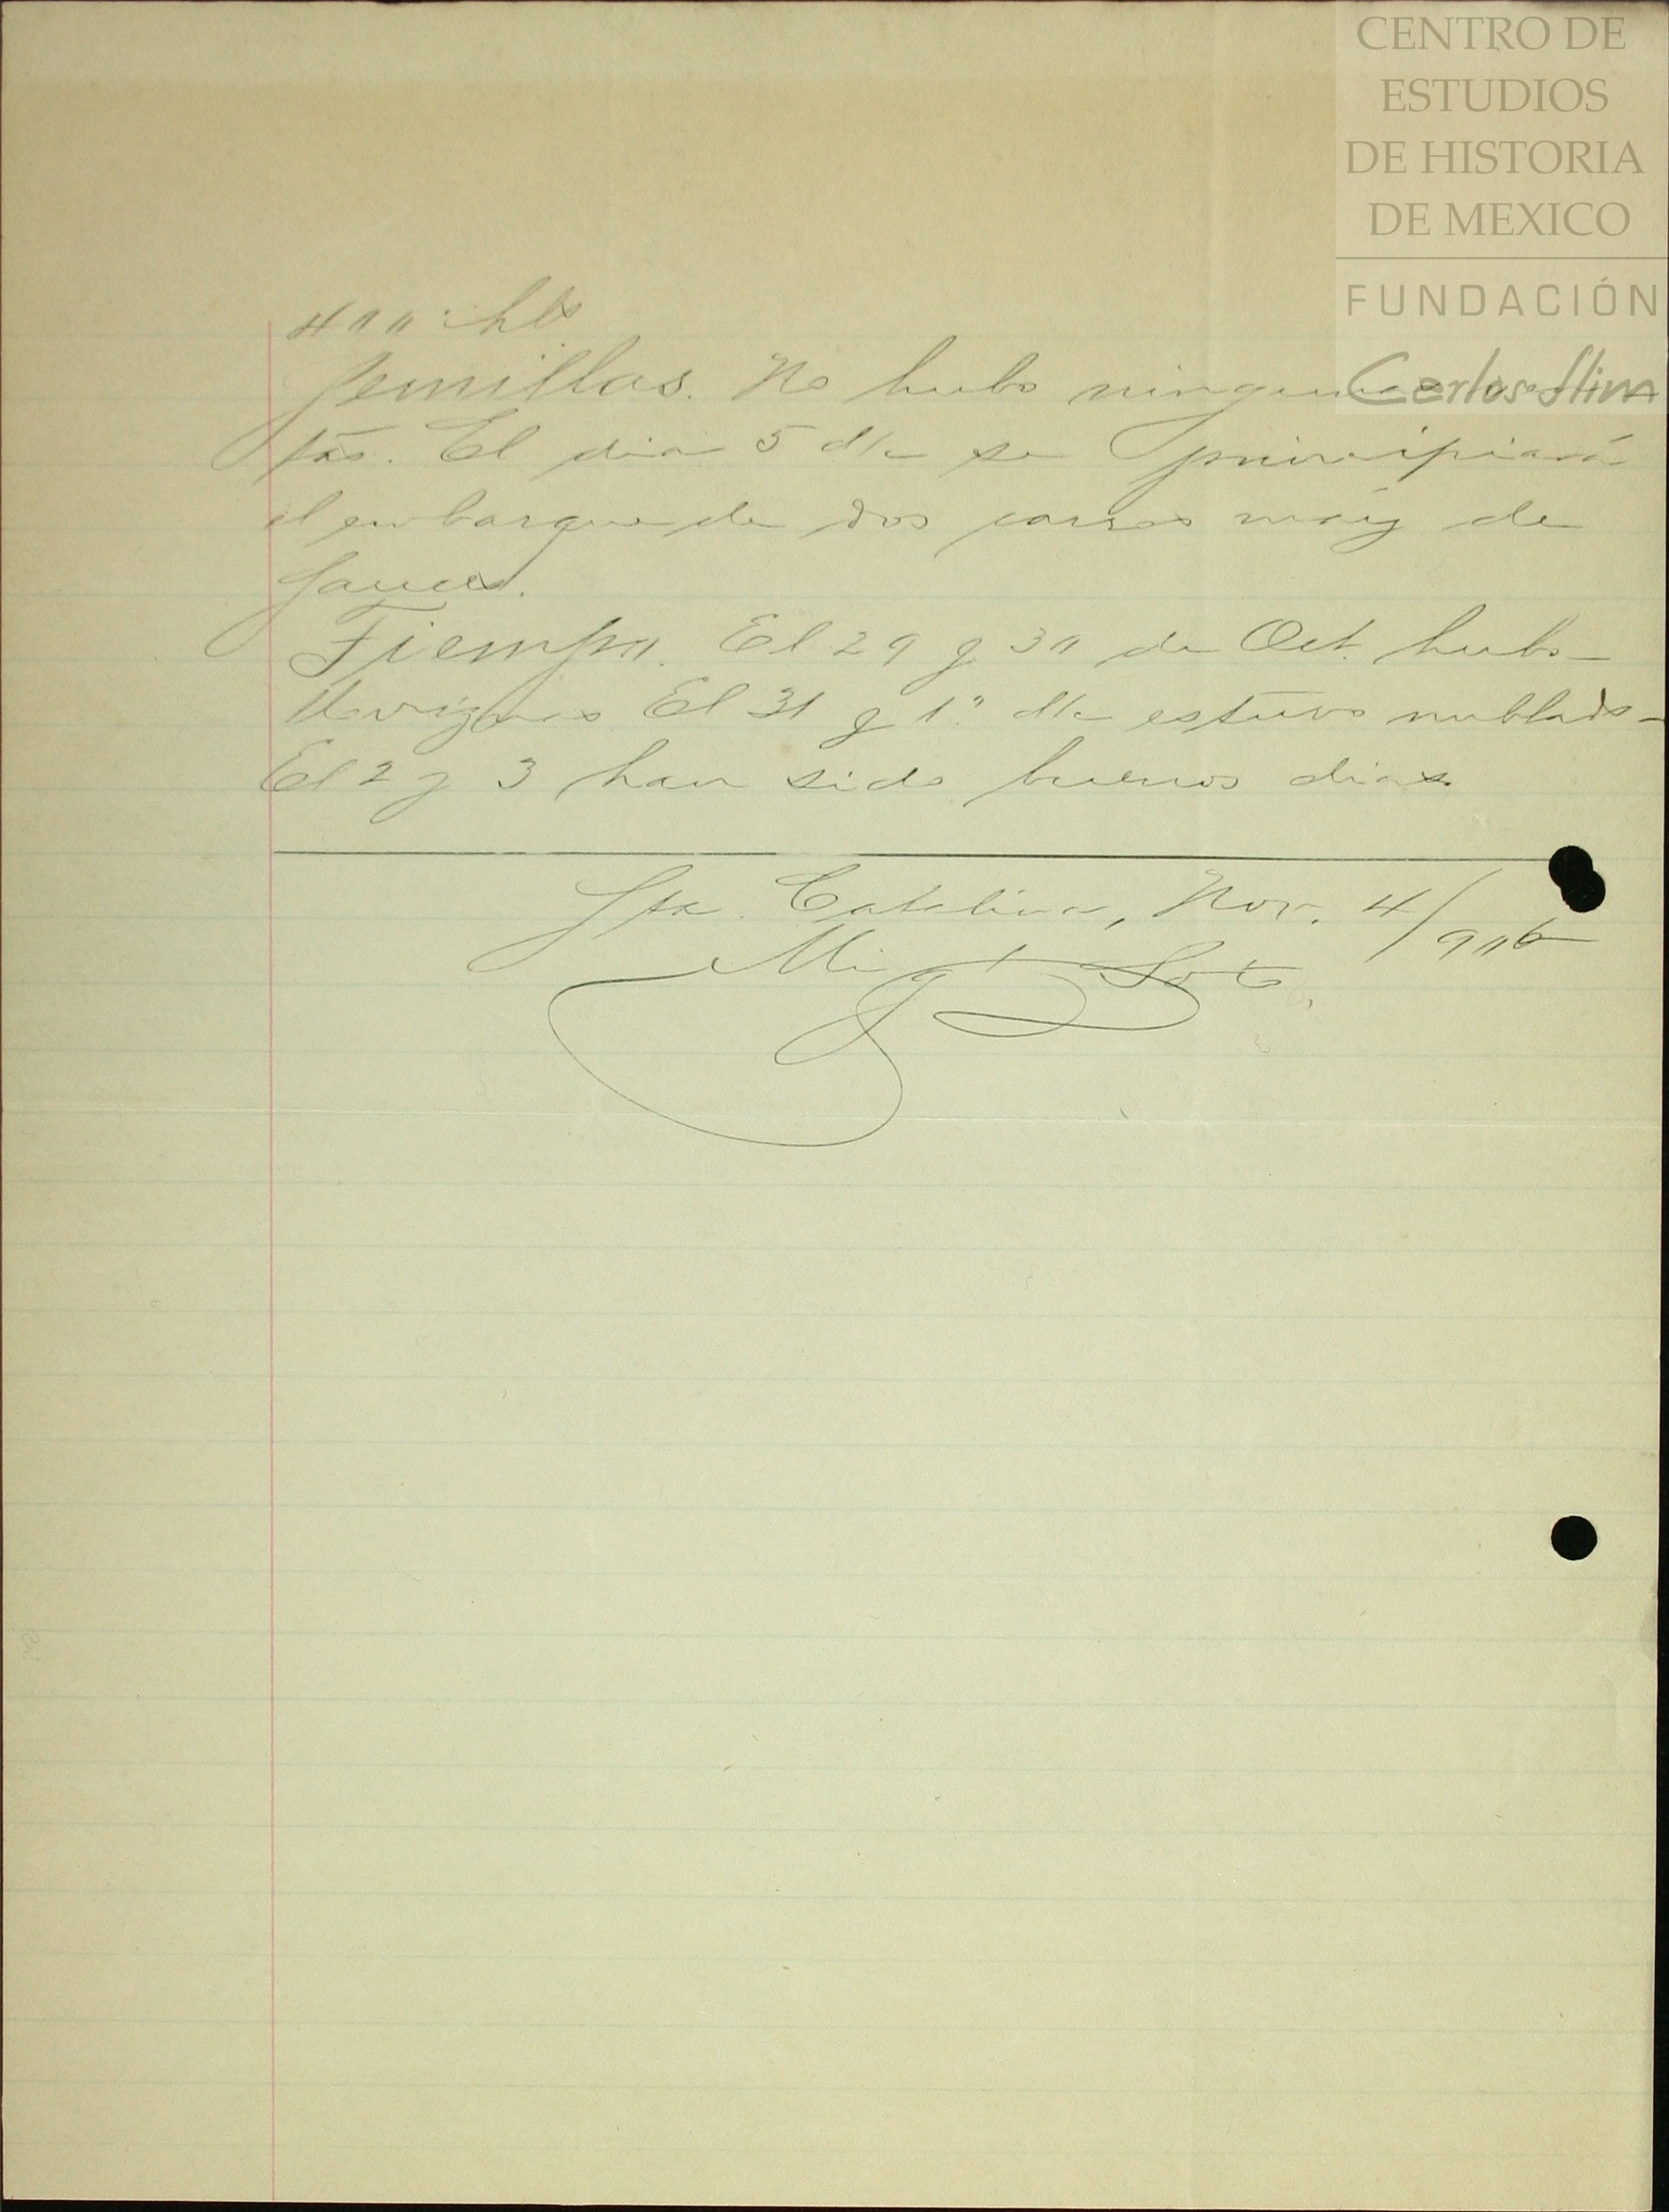 CENTRO DE
ESTUDIOS
DE HISTORIA
DE MEXICO
FUNDACIÓN
Carlos Slim
400 hls
Semillas. No hubo ninguna
tas. El dia 5 d/e se principiará
el embarque de dos carros maíz de
Sauced.
Tiempo. El 29 y 30 de Oct. hubo
lloviznas El 31 y 1.º d/e estuvo nublado-
El 2 y 3 han sido buenos dias.
Sta. Catalina, Nov. 4/906
Migl Soto,